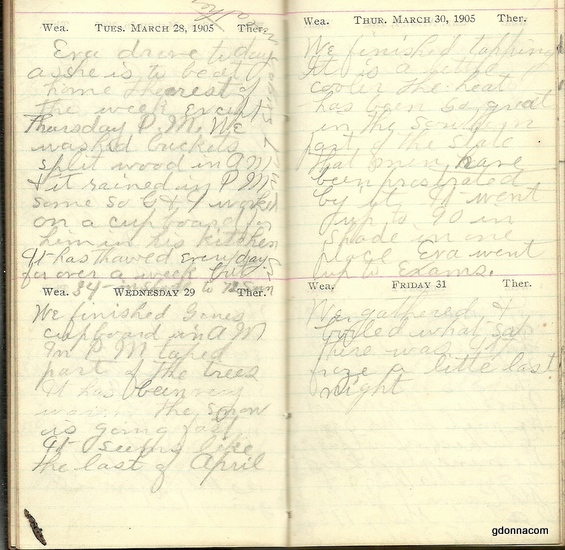 Wea. TUES. MARCH 28, 1905 Ther.
Eva drove today
as she is to be at
home the rest of
the week except
Thursday P.M. We
washed buckets
split wood in A M
& it rained in P M
some so G & I worked
on a cupboard for
him in his kitchen
It has thawed every day
for over a week but
34 in shade to 72 Sun
Wea. WEDNESDAY 29 Ther.
We finished Genes
cupboard in A M
In P M taped
part of the trees
It has been very
warm the snow
is going fast
It seems like
the last of April
Wea. THUR. MARCH 30, 1905 Ther.
We finished tapping
It is a little
cooler the heat
has been so great
in the south
part of the state
that men have
been prostrated
by it. It went
up to 90 in
shade in one
place Eva went
up to Exams.
Wea. FRIDAY 31 Ther.
We gathered &
boiled what sap
there was It
froze a little last
night
gdonnacom